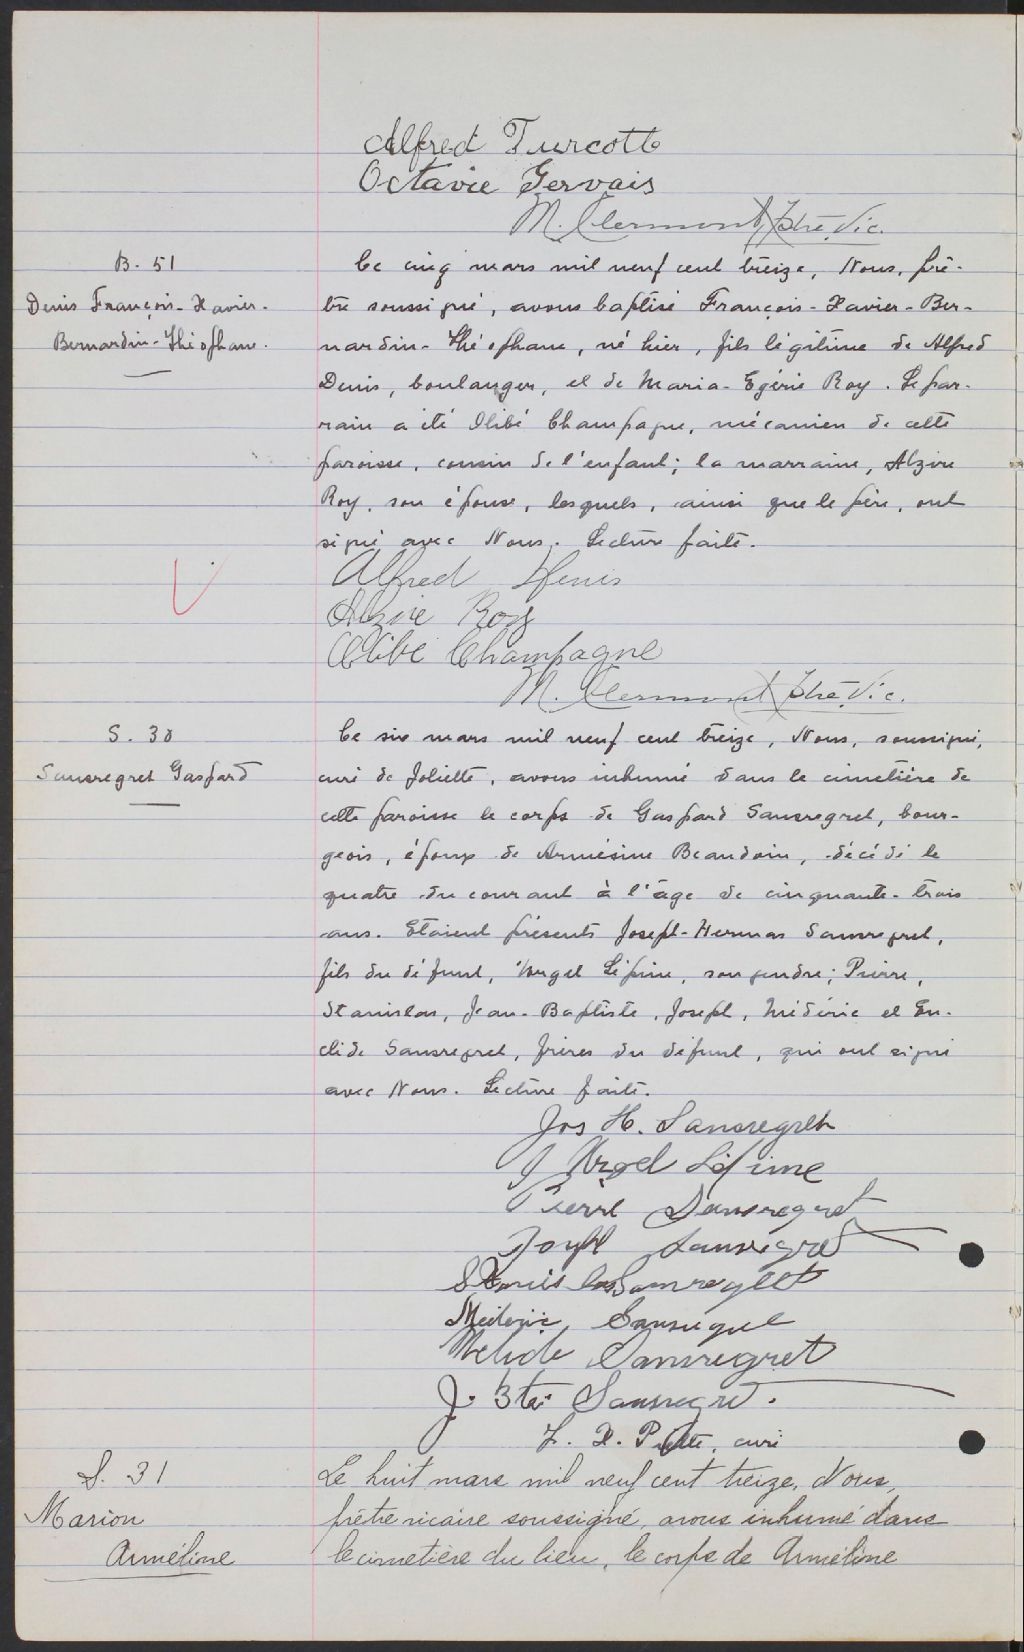 Alfred Turcotte
Octavie Gervais
M. Clermont, Ptre, Vic.
B. 51
Denis François-Xavier-
Bernardin-Théophane.
Ce cinq mars mil neuf cent treize, Nous, prê-
tre soussigné, avons baptisé François-Xavier-Ber-
nardin-Théophane, né hier, fils légitime de Alfred
Denis, boulanger, et de Maria-Egérie Roy. Le par-
rain a été Olibé Champagne, mécanien de cette
paroisse, cousin de l'enfant; la marraine, Alzire
Roy, son épouse, lesquels, ainsi que le père, ont
signé avec Nous. Lecture faite.
Alfred Denis
Alzire Roy
Olibe Champagne
M. Clermont Ptre, Vic.
S. 30
Sansregret Gaspard
Ce six mars mil neuf cent treize, Nous, soussigné,
curé de Joliette, avons inhumé dans le cimetière de
cette paroisse le corps de Gaspard Sansregret, bour-
geois, époux de Armésine Beaudoin, décédé le
quatre du courant à l'âge de cinquante-trois
ans. Etaient présents Joseph-Hermas Sansregret,
fils du défunt, Urgel Lépine, son gendre; Pierre,
Stanislas, Jean-Baptiste, Joseph, Médéric et Eu-
clide Sansregret, frères du défunt, qui ont signé
avec Nous. Lecture faite.
Jos H. Sansregret
J Urgel Lépine
Pierre Sansregret
Joseph Sansregret
Stanislas Sansregret
Mederic Sansregret
Sansregret
J. Bte Sansregret.
curé
S. 31
Marion
Arméline
Le huit mars mil neuf cent treize, Nous,
prêtre vicaire soussigné, avons inhumé dans
le cimetière du lieu, le corps de Arméline